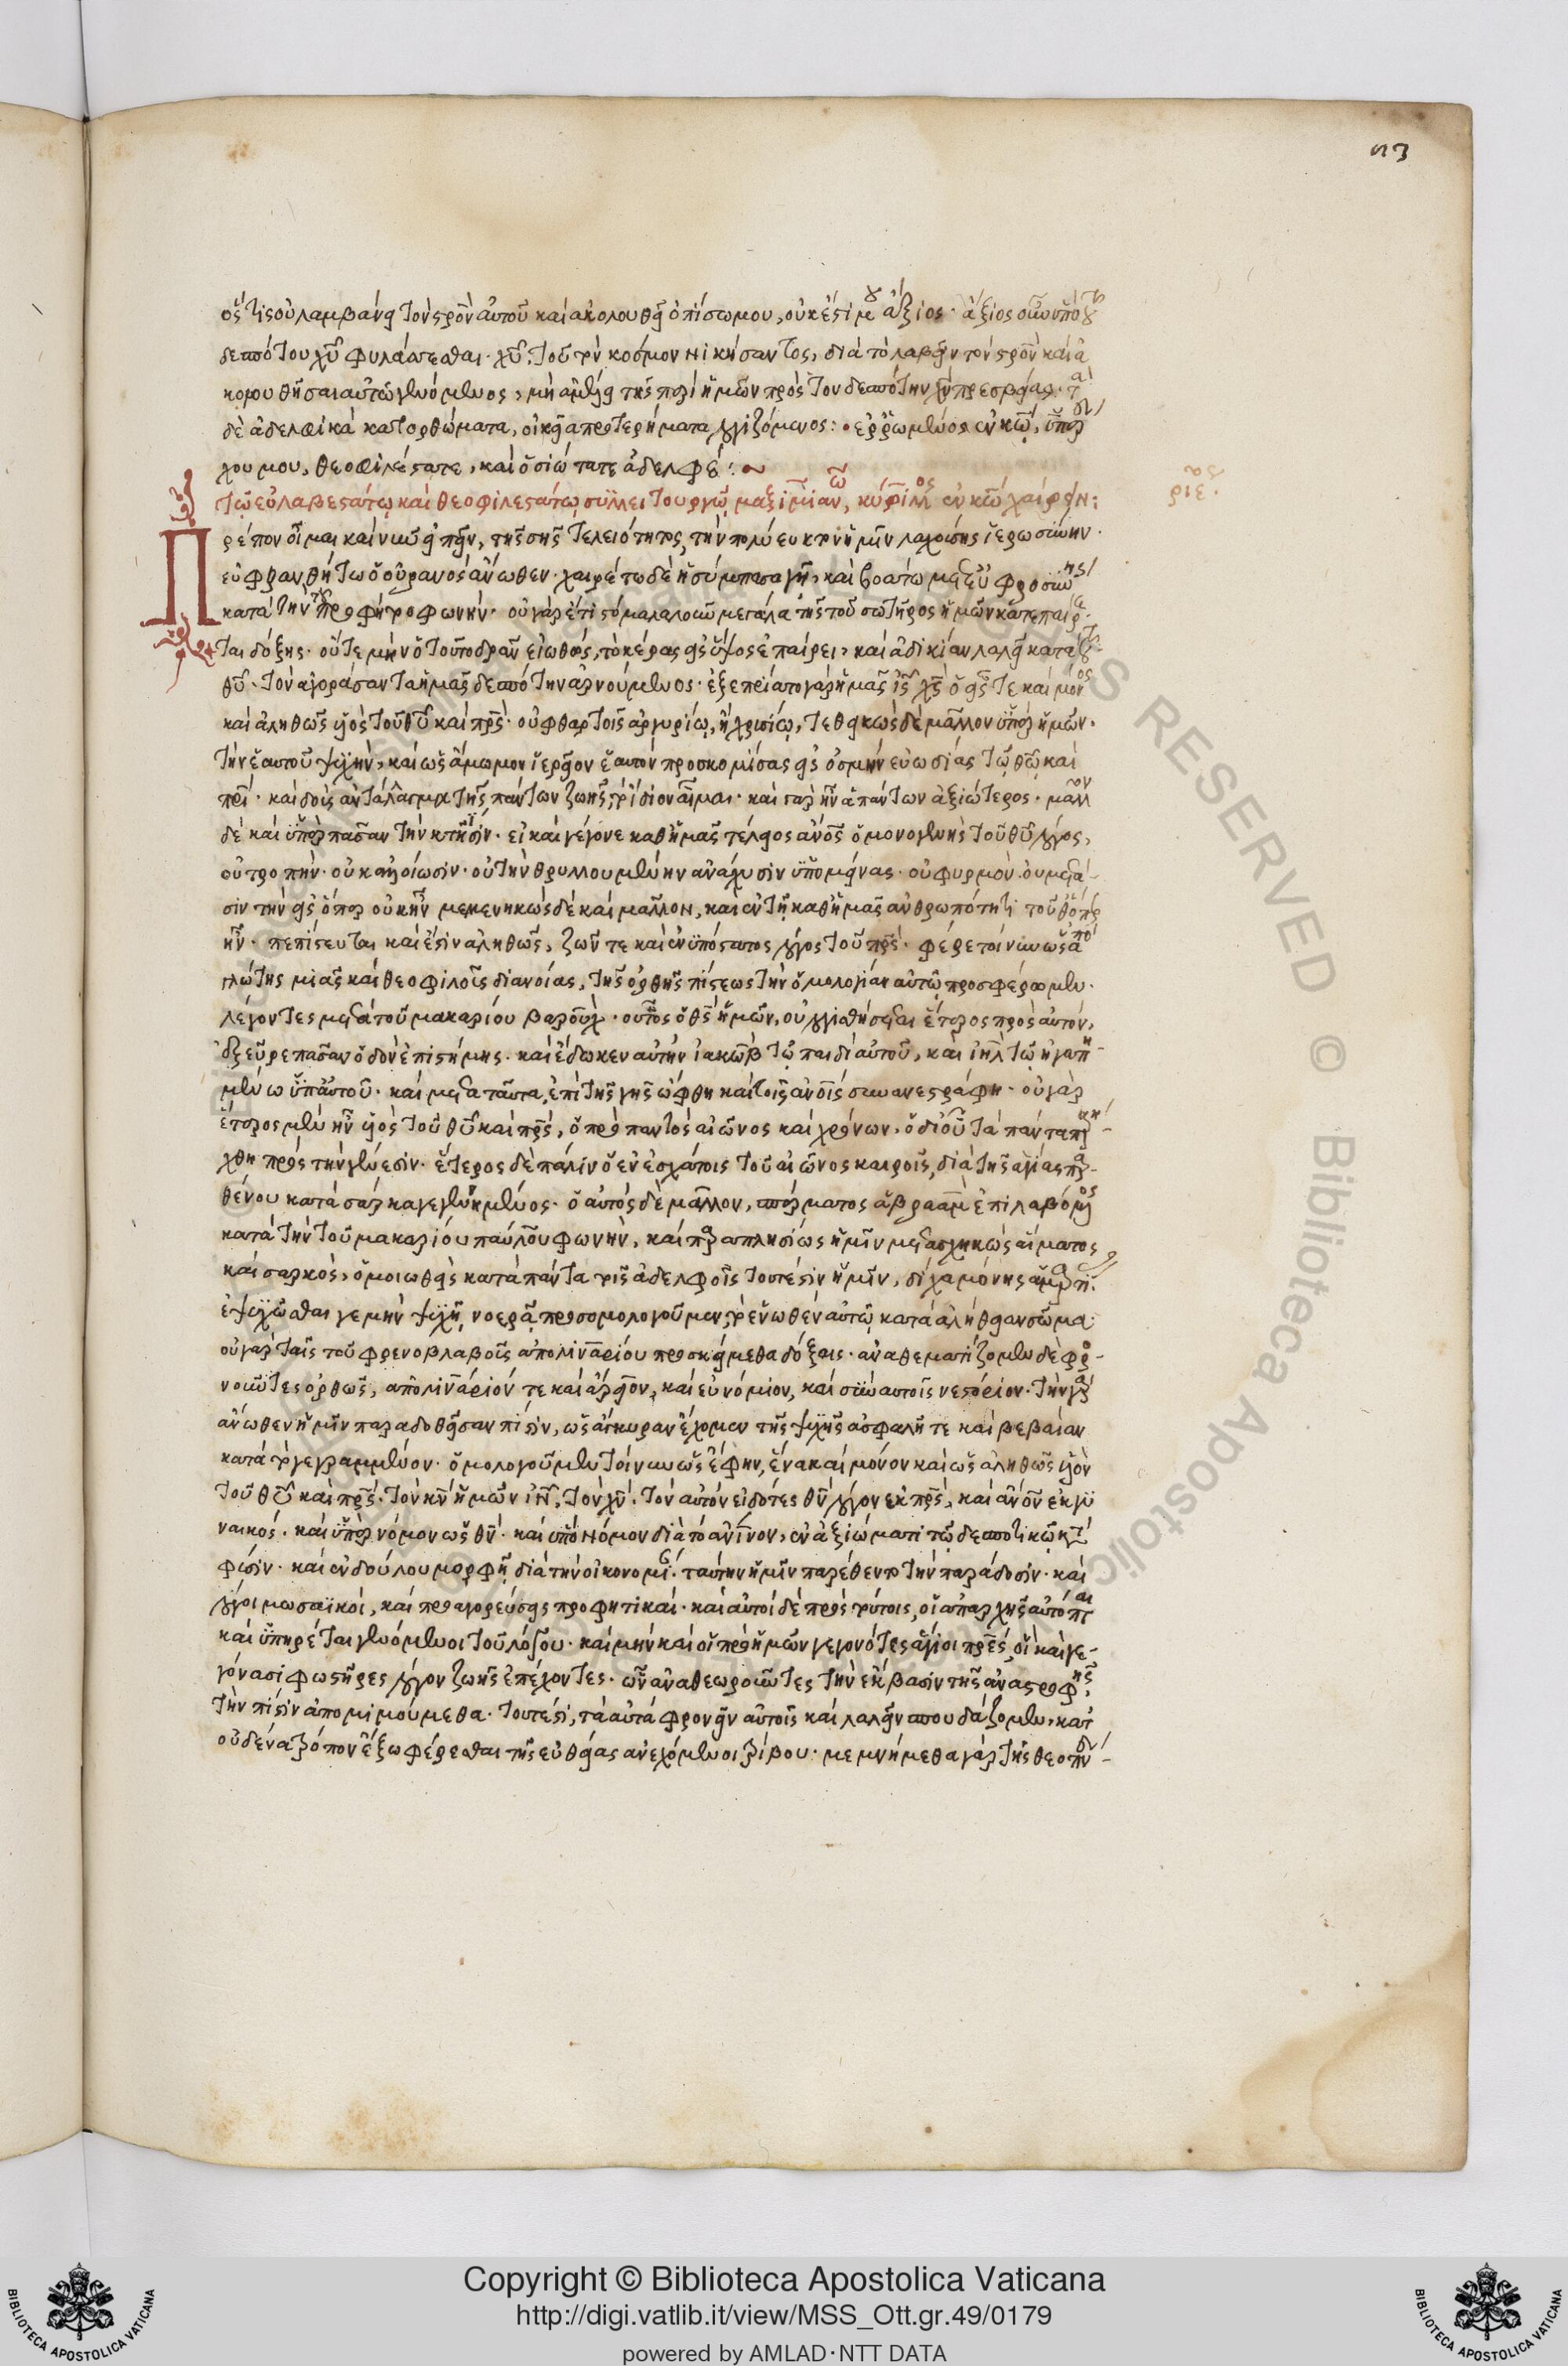 ὅς τις οὐ λαμβάνει τὸν σρ̅ον αὐτοῦ καὶ ἀκολουθεῖ ὀπίσω μου, οὐκ ἔστι μου ἄξιος· ἄξιος οὖν ὑπὸ τοῦ
δεσπότου χ̅υ φυλάττεσθαι· χ̅υ, τοῦ τὸν κόσμον νικήσαντος, διὰ τὸ λαβεῖν τὸν σρ̅ον καὶ ἀ
κολουθῆσαι αὐτῶ γενόμενος, μὴ ἀμέλει τῆς περὶ ἡμῶν πρὸς τὸν δεσπότην χ̅ν πρεσβείας· τὰ
δὲ ἀδελφικὰ κατορθώματα, οἰκεῖα προτερήματα λογιζόμενος: ἐρρωμένος ἐν κ̅ω, ὑπερεύ
χου μου, θεοφιλέστατε, καὶ ὁσιώτατε ἀδελφέ:
Τῷ εὐλαβεστάτῳ καὶ θεοφιλεστάτῳ συλλειτουργῷ μαξιμιανῶ, κύριλλος ἐν κ̅ω χαίρειν:
Πρέπον οἶμαι καὶ νῦν εἰπεῖν, τῆς σῆς τελειότητος, τὴν πολύευκτον ἡμῖν λαχούσης ἱερωσύνην·
εὐφρανθήτω ὁ οὐρανὸς ἄνωθεν· χαιρέτω δὲ ἡ σύμπασα γῆ, καὶ βοάτω μετ' εὐφροσύνης
κατὰ τὴν τοῦ προφήτου φωνήν· οὐ γὰρ ἔτι στόμα λαλοῦν μεγάλα τῆς τοῦ σωτῆρος ἡμῶν κατεπαίρε
ται δόξης· οὔτε μὴν ὁ τοῦτο δρᾶν εἰωθὼς, τὸ κέρας εἰς ὕψος ἐπαίρει, καὶ ἀδικίαν λαλεῖ κατὰ τοῦ
θ̅υ· τὸν ἀγοράσαντα ἡμᾶς δεσπότην ἀρνούμενος· ἐξεπρίατο γὰρ ἡμᾶς ι̅ς χ̅ς ὁ εἷς τε καὶ μόνος
καὶ ἀληθῶς υἱὸς τοῦ θ̅υ καὶ πρ̅ς· οὐ φθαρτοῖς ἀργυρίῳ, ἢ χρυσίῳ, τεθεικὼς δὲ μᾶλλον ὑπὲρ ἡμῶν,
τὴν ἑαυτοῦ ψυχὴν, καὶ ὡς ἄμωμον ἱερεῖον ἑαυτὸν προσκομίσας εἰς ὀσμὴν εὐωδίας τῷ θ̅ω καὶ
πρ̅ι· καὶ δοὺς ἀντάλλαγμα τῆς πάντων ζωῆς, τὸ ἴδιον αἷμα· καὶ γὰρ ἦν ἁπάντων ἀξιώτερος· μᾶλλον
δὲ καὶ ὑπὲρ πᾶσαν τὴν κτίσιν· εἰ καὶ γέγονε καθ' ἡμᾶς τέλειος ἄν̅ος ὁ μονογενὴς τοῦ θ̅υ λόγος,
οὐ τροπὴν· οὐκ ἀλλοίωσιν· οὐ τὴν θρυλλουμένην ἀνάχυσιν ὑπομείνας· οὐ φυρμὸν· οὐ μετά
στασιν τὴν εἰς ὅπερ οὐκ ἦν μεμενηκὼς δὲ καὶ μᾶλλον, καὶ ἐν τῇ καθ' ἡμᾶς ἀνθρωπότητι τοῦθ' ὅπερ
ἦν· πεπίστευται καὶ ἔστιν ἀληθῶς, ζῶν τε καὶ ἐνυπόστατος λόγος τοῦ πρ̅ς· φέρε τοίνυν ὡς ἀπὸ
γλώττης μιᾶς καὶ θεοφιλοῦς διανοίας, τῆς ὀρθῆς πίστεως τὴν ὁμολογίαν αὐτῷ προσφέρωμεν·
λέγοντες μετὰ τοῦ μακαρίου βαρούχ· οὗτος ὁ θ̅ς ἡμῶν, οὐ λογισθήσεται ἕτερος πρὸς αὐτόν,
ἐξεῦρε πᾶσαν ὁδὸν ἐπιστήμης· καὶ ἔδωκεν αὐτὴν ἰακὼβ τῷ παιδὶ αὐτοῦ, καὶ ι̅η̅λ τῷ ἠγαπη
μένω ὑπ' αὐτοῦ· καὶ μετὰ ταῦτα, ἐπὶ τῆς γῆς ὤφθη καὶ τοῖς ἀν̅οις συνανεστράφη· οὐ γὰρ
ἕτερος μὲν ἦν υἱὸς τοῦ θ̅υ καὶ πρ̅ς, ὁ πρὸ παντὸς αἰῶνος καὶ χρόνων, ὁ δι' οὗ τὰ πάντα παρή
χθη πρὸς τὴν γένεσιν· ἕτερος δὲ πάλιν ὁ ἐν ἐσχάτοις τοῦ αἰῶνος καιροῖς, διὰ τῆς ἁγίας παρ
θένου κατὰ σάρκα γεγεννημένος· ὁ αὐτὸς δὲ μᾶλλον, σπέρματος ἀβραὰμ ἐπιλαβόμενος
κατὰ τὴν τοῦ μακαρίου παύλου φωνὴν, καὶ παραπλησίως ἡμῖν μετασχηκὼς αἵματος
καὶ σαρκὸς, ὁμοιωθεὶς κατὰ πάντα τοῖς ἀδελφοῖς τουτέστιν ἡμῖν, δίχα μόνης ἁμαρτίας·
ἐψυχῶσθαι γε μὴν ψυχῇ νοερᾷ προσομολογοῦμεν, τὸ ἑνωθὲν αὐτῷ κατὰ ἀλήθειαν σῶμα·
οὐ γὰρ ταῖς τοῦ φρενοβλαβοῦς ἀπολιναρίου προσκείμεθα δόξαις· ἀναθεματίζομεν δὲ φρο
νοῦντες ὀρθῶς, ἀπολινάριόν τε καὶ ἄρειον, καὶ εὐνόμιον, καὶ σὺν αὐτοῖς νεστόριον· τὴν γὰρ
ἄνωθεν ἡμῖν παραδοθεῖσαν πίστιν, ὡς ἄγκυραν ἔχομεν τῆς ψυχῆς ἀσφαλῆ τε καὶ βεβαίαν
κατὰ τὸ γεγραμμένον· ὁμολογοῦμεν τοίνυν ὡς ἔφην, ἕνα καὶ μόνον καὶ ὡς ἀληθῶς υἱὸν
τοῦ θ̅υ καὶ πρ̅ς· τὸν κ̅ν ἡμῶν ι̅ν, τὸν χ̅ν· τὸν αὐτὸν εἰδότες θ̅ν λόγον ἐκ πρ̅ς, καὶ ἄν̅ον ἐκ γυ
ναικός· καὶ ὑπὲρ νόμον ὡς θ̅ν· καὶ ὑπὸ νόμον διὰ τὸ ἀν̅ινον, ἐν ἀξιώματι τῷ δεσποτικῷ κατὰ
φύσιν· καὶ ἐν δούλου μορφῇ διὰ τὴν οἰκονομίαν· ταύτην ἡμῖν παρέθεντο τὴν παράδοσιν· καὶ
λόγοι μωσαϊκοὶ, καὶ προαγορεύσεις προφητικαὶ· καὶ αὐτοὶ δὲ πρὸς τούτοις, οἱ ἀπαρχῆς αὐτόπται
καὶ ὑπηρέται γενόμενοι τοῦ λόγου· καὶ μὴν καὶ οἱ πρὸ ἡμῶν γεγονότες ἅγιοι πρ̅ες, οἳ καὶ γε
γόνασι φωστῆρες λόγον ζωῆς ἐπέχοντες· ὧν ἀναθεωροῦντες τὴν ἔκβασιν τῆς ἀναστροφῆς,
τὴν πίστιν ἀπομιμούμεθα· τουτέστι, τὰ αὐτὰ φρονεῖν αὐτοῖς καὶ λαλεῖν σπουδάζομεν, κατ'
οὐδένα τρόπον ἔξω φέρεσθαι τῆς εὐθείας ἀνεχόμενοι τρίβου· μεμνήμεθα γὰρ τῆς θεοπνεύ
Copyright © Biblioteca Apostolica Vaticana
http://digi.vatlib.it/view/MSS_Ott.gr.49/0179
powered by AMLAD·NTT DATA
BIBLIOTECA APOSTOLICA VATICANA
BIBLIOTECA APOSTOLICA VATICANA